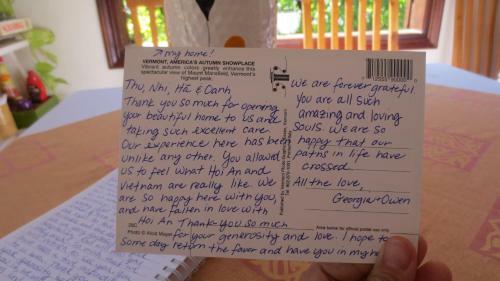 ↗ my home!
VERMONT, AMERICA'S AUTUMN SHOWPLACE
Vibrant autumn colors greatly enhance this
spectacular view of Mount Mansfield, Vermont's
highest peak.
Thu, Nhi, Hā & Oanh
Thank you so much for opening
your beautiful home to us and
taking such excellent care.
Our experience here has been
unlike any other. You allowed
us to feel what Hoi An and
Vietnam are really like. We
are so happy here with you,
and have fallen in love with
Hoi An. Thank you so much
for your generosity and love. I hope to
some day return the favor and have you in my
Photo © Alois Mayer
We are forever grateful.
You are all such
amazing and loving
souls. We are so
happy that our
paths in life have
crossed.
All the love,
Georgia + Owen
Area below for official postal use only